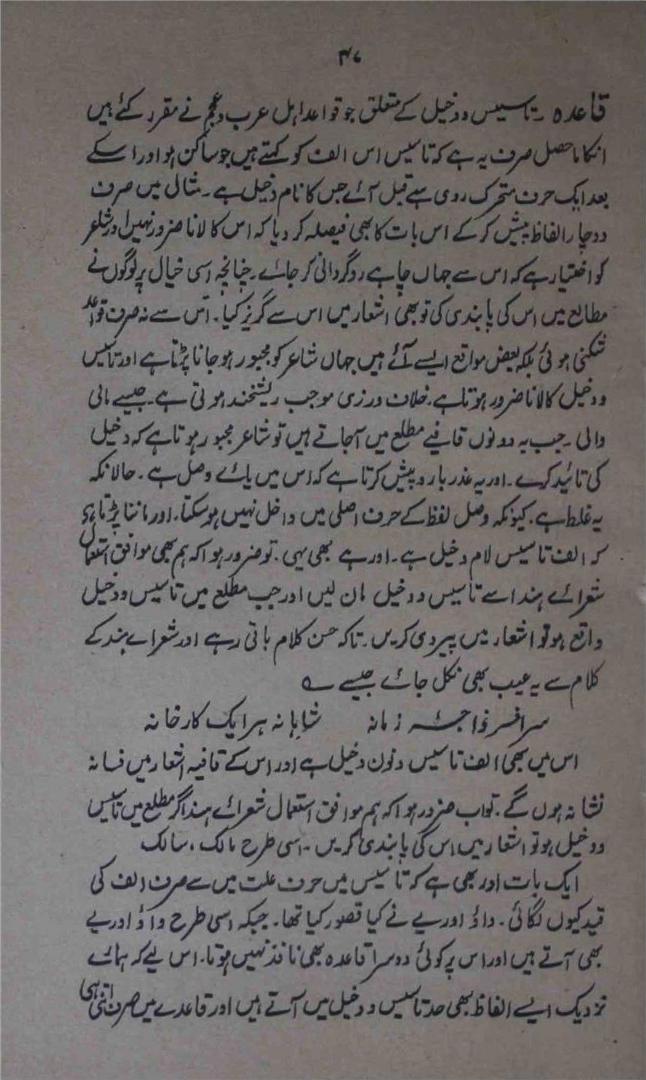 ۴۷
قاعدہ ۔ تاسیس و دخیل کے متعلق جو قواعد اہل عرب و عجم نے مقرر کئے ہیں
انکا ماحصل صرف یہ ہے کہ تاسیس اس الف کو کہتے ہیں جو ساکن ہو اور اسکے
بعد ایک حرف متحرک روی سے قبل آئے جس کا نام دخیل ہے ۔ مثال میں صرف
دو چار الفاظ پیش کر کے اس بات کا بھی فیصلہ کر دیا کہ اس کا لانا ضرور نہیں اور شاعر
کو اختیار ہے کہ اس سے جہاں چاہے روگردانی کر جائے ۔ چنانچہ اسی خیال پر لوگوں نے
مطالع میں اس کی پابندی کی تو بھی اشعار میں اس سے گریز کیا ۔ اس سے نہ صرف قواعد
شکنی ہوئی بلکہ بعض مواقع ایسے آئے ہیں جہاں شاعر کو مجبور ہو جانا پڑتا ہے اور تاسیس
و دخیل کا لانا ضرور ہوتا ہے ۔ خلاف ورزی موجب ریشخند ہوتی ہے ۔ جیسے مالی
والی ۔ جب یہ دونوں قافیے مطلع میں آجاتے ہیں تو شاعر مجبور ہوتا ہے کہ دخیل
کی تائید کرے ۔ اور یہ عذر بارد پیش کرتا ہے کہ اس میں یائے وصل ہے ۔ حالانکہ
یہ غلط ہے ۔ کیونکہ وصل لفظ کے حرف اصلی میں داخل نہیں ہو سکتا ۔ اور ماننا پڑتا ہے
کہ الف تاسیس لام دخیل ہے ۔ اور ہے بھی یہی ۔ تو ضرور ہوا کہ ہم بھی موافق استعمال
شعرائے ہند اسے تاسیس و دخیل مان لیں اور جب مطلع میں تاسیس و دخیل
واقع ہو تو اشعار میں پیروی کریں ۔ تاکہ حسن کلام باقی رہے اور شعرائے ہند کے
کلام سے یہ عیب بھی نکل جائے جیسے ؎
سرافسر خواجۂ زمانہ شاہانہ ہر ایک کارخانہ
اس میں بھی الف تاسیس و نون دخیل ہے اور اس کے قافیہ اشعار میں فسانہ
نشانہ ہوں گے ۔ تو اب ضرور ہوا کہ ہم موافق استعمال شعرائے ہند اگر مطلع میں تاسیس
و دخیل ہو تو اشعار میں اس کی پابندی کریں ۔ اسی طرح مالک ، سالک
ایک بات اور بھی ہے کہ تاسیس میں حرف علت میں سے صرف الف کی
قید کیوں لگائی ۔ داؤ اور یے نے کیا قصور کیا تھا ۔ جبکہ اسی طرح واؤ اور یے
بھی آتے ہیں اور اس پر کوئی دوسرا قاعدہ بھی نافذ نہیں ہوتا ۔ اس لیے کہ ہمارے
نزدیک ایسے الفاظ بھی حد تاسیس و دخیل میں آتے ہیں اور قاعدے میں صرف اتنی ہی